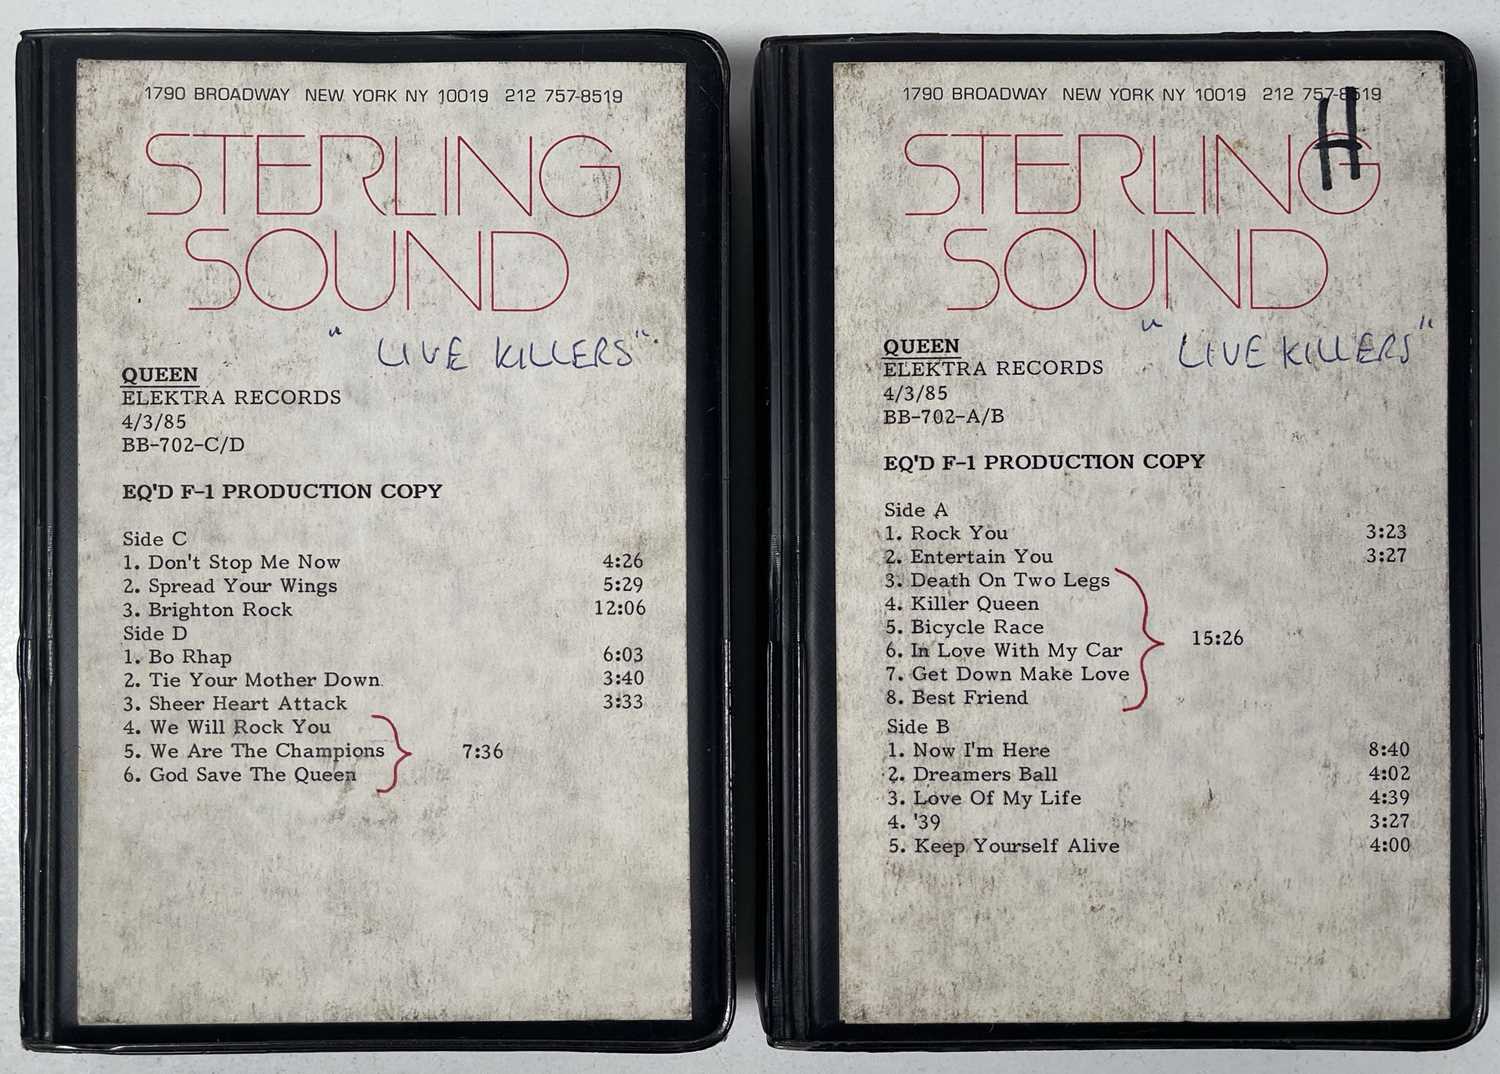 1790 BROADWAY NEW YORK NY 10019 212 757-8519
STERLING
SOUND
"LIVE KILLERS"
QUEEN
ELEKTRA RECORDS
4/3/85
BB-702-C/D
EQ'D F-1 PRODUCTION COPY
Side C
1. Don't Stop Me Now 4:26
2. Spread Your Wings 5:29
3. Brighton Rock 12:06
Side D
1. Bo Rhap 6:03
2. Tie Your Mother Down 3:40
3. Sheer Heart Attack 3:33
4. We Will Rock You
5. We Are The Champions 7:36
6. God Save The Queen
1790 BROADWAY NEW YORK NY 10019 212 757-8519
H
STERLING
SOUND
"LIVE KILLERS"
QUEEN
ELEKTRA RECORDS
4/3/85
BB-702-A/B
EQ'D F-1 PRODUCTION COPY
Side A
1. Rock You 3:23
2. Entertain You 3:27
3. Death On Two Legs
4. Killer Queen
5. Bicycle Race
15:26
6. In Love With My Car
7. Get Down Make Love
8. Best Friend
Side B
1. Now I'm Here 8:40
2. Dreamers Ball 4:02
3. Love Of My Life 4:39
4. '39 3:27
5. Keep Yourself Alive 4:00